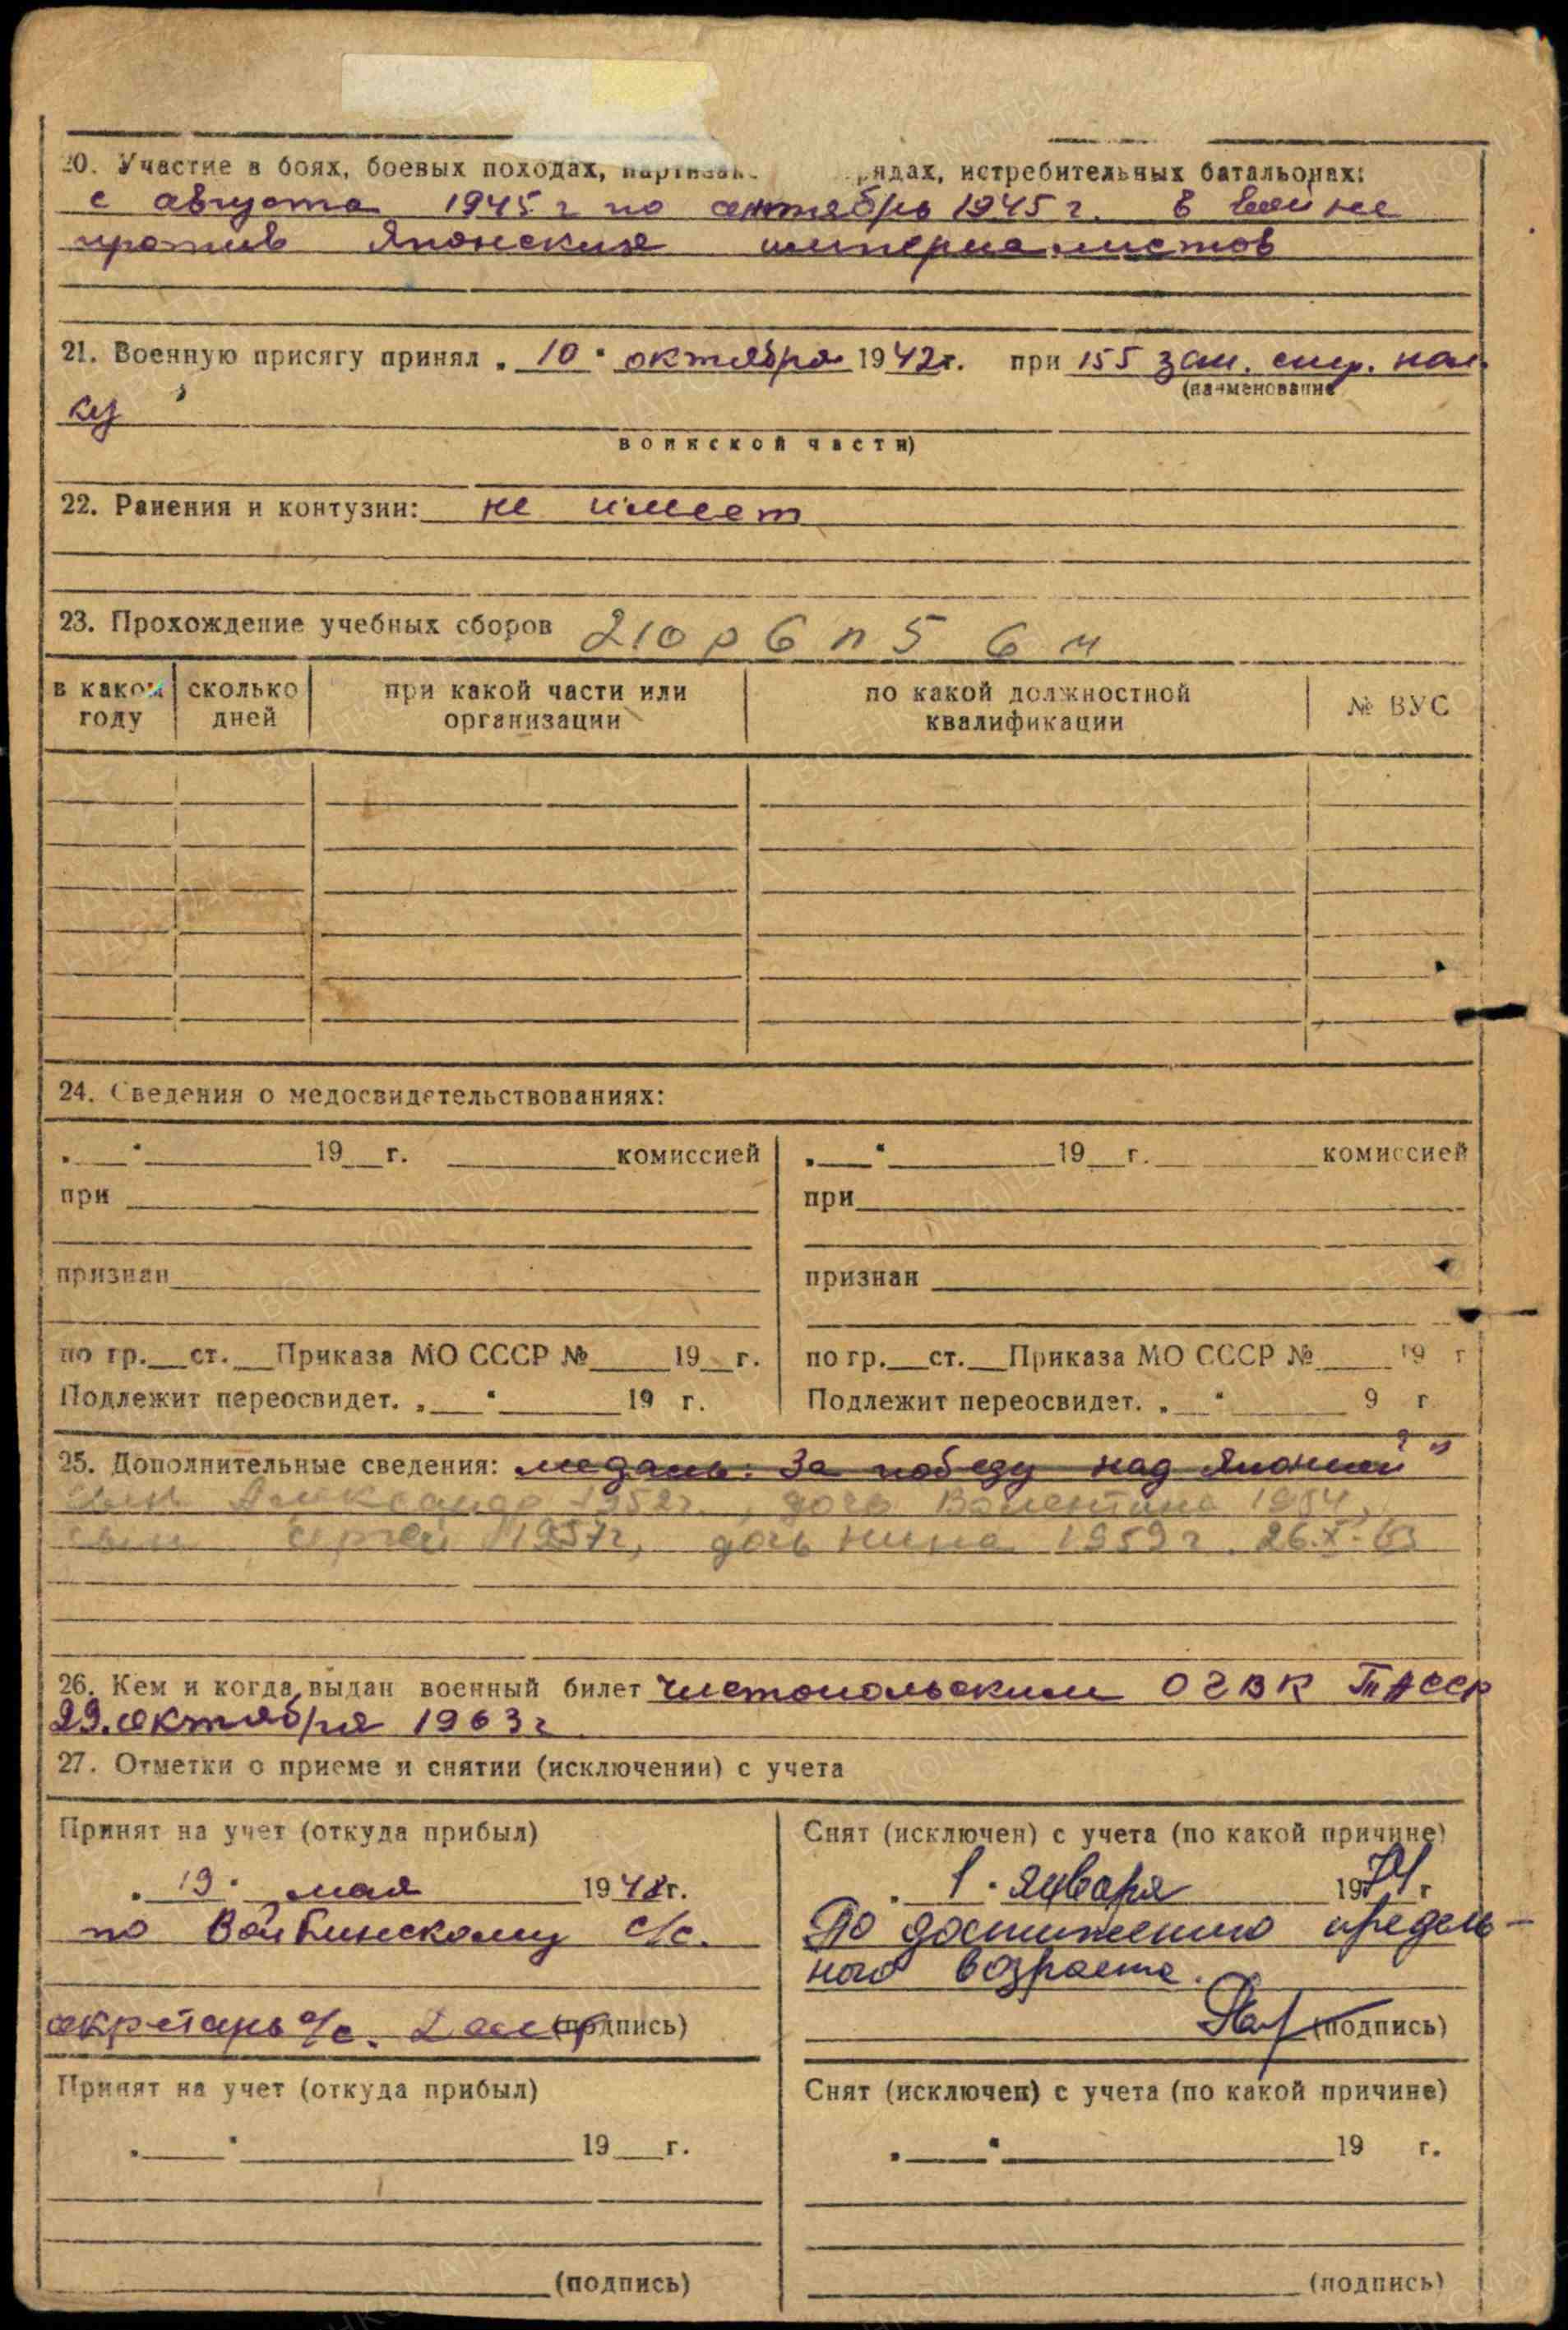 20. Участие в боях, боевых походах, рядах, истребительных батальонах:
с августа 1945 г по сентябрь 1945 г. в войне
против Японских империалистов
21. Военную присягу принял „10“ октября 1942г. при 155 зап. стр. пол-
(наименование
ку
воинской части)
22. Ранения и контузии: не имеет
23. Прохождение учебных сборов 210 р б п 5 6
в каком году сколько дней при какой части или организации по какой должностной квалификации № ВУС
24. Сведения о медосвидетельствованиях:
„__“ 19__г. комиссией „__“ 19__г. комиссией
при при
признан признан
по гр.__ст.__Приказа МО СССР №__19__г. по гр.__ст.__Приказа МО СССР №__19 г
Подлежит переосвидет. „__“ 19 г. Подлежит переосвидет. „__“ 9 г
25. Дополнительные сведения: медаль: За победу над Японией"
сын Александр 1952г., дочь Валентина 1954,
сын Сергей 1957г, дочь Нина 1959г. 26.X.63
26. Кем и когда выдан военный билет Чистопольским ОГВК ТАССР
29. октября 1963г
27. Отметки о приеме и снятии (исключении) с учета
Принят на учет (откуда прибыл) Снят (исключен) с учета (по какой причине)
„19“ мая 1948г. „1“ января 1974 г
по с/с. По достижению предель-
ного возраста.
секретарь с/с. (подпись) (подпись)
Принят на учет (откуда прибыл) Снят (исключен) с учета (по какой причине)
„__“ 19__г. „__“ 19 г.
(подпись) (подпись)